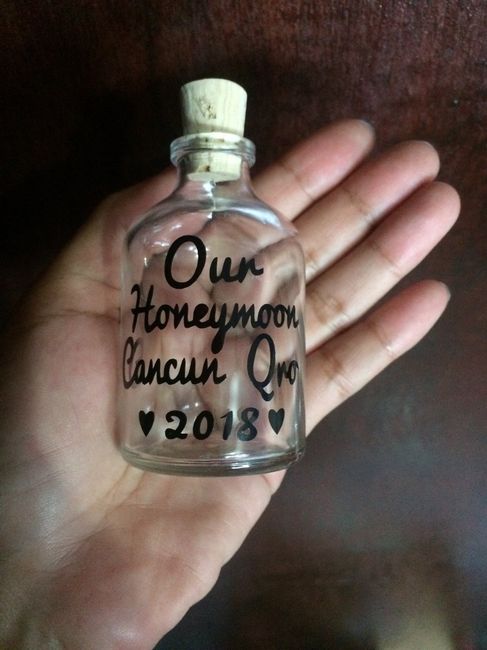 Our
Honeymoon
Cancun Qro
♥ 2018 ♥